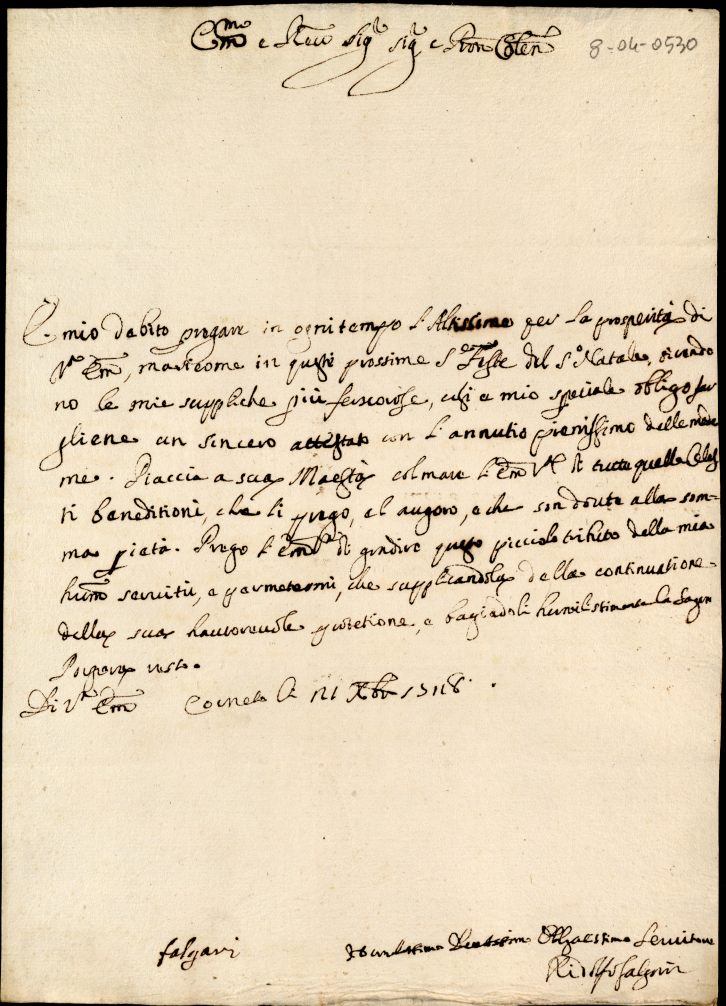 Em̅mo e Reu Sigr Sigr e Pron Colen̅
8-04-0530
E mio debito pregare in ogni tempo l'Altissimo per la prosperità di
Vra Em̅, ma sicome in queste prossime Ste Feste del So Natale, devendo
no le mie suppliche più feruorose, cosi e mio speciale obligo far
gliene un sincero attestato con l'annutio pienissimo delle mede
me. Piaccia a sua Maestà colmare l'Em̅ Vra di tutte quelle Celes
ti beneditioni, che li prego, el auguro, e che son doute alla som=
ma pietà. Prego l'Em̅ Vra di gradire questo picciolo tributo della mia
hum̅ seruitù, e permetermi, che supplicandola della continuatione
della sua hautoreuole protetione, e bagiadoli humilissimamente la Sagra
Porpora resto.
Di Vra Em̅ Corneto li 21 Xbre
falgari
Deuotissimo Obligatissimo Seruitore
Ridolfo falgari